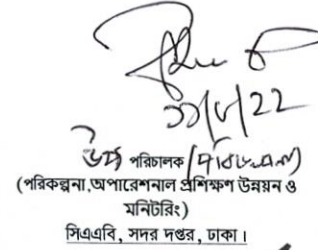 ২২/৮/22
উপ পরিচালক (পরিকল্পনা)
(পরিকল্পনা,অপারেশনাল প্রশিক্ষণ উন্নয়ন ও
মনিটরিং)
সিএএবি, সদর দপ্তর, ঢাকা।